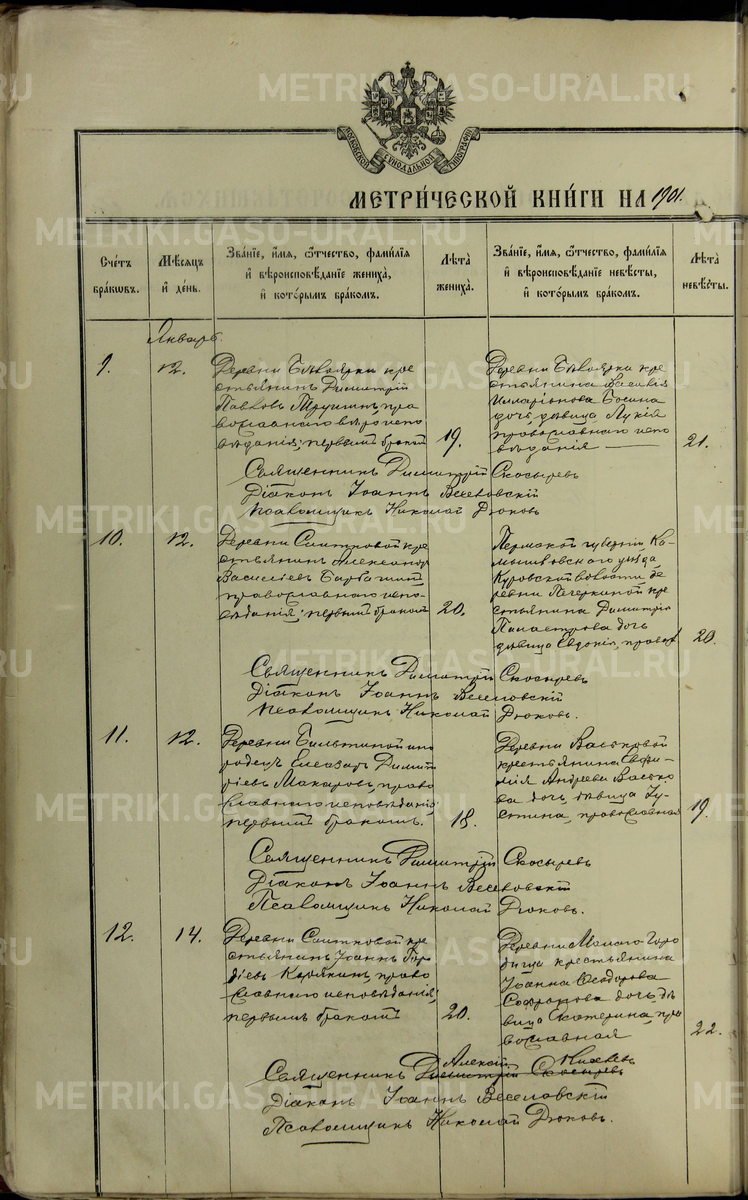 METRIKI.GASO-URAL.RU
МОСКОВСКОЙ СѴНОДАЛЬНОЙ ТИПОГРАФІИ
МЕТРИ́ЧЕСКОЙ КНИ́ГИ НА 1901.
Сче́тъ бра́кѡвъ.
Мѣ́сѧцъ и҆ де́нь.
Зва́нїе, и҆́мѧ, ѻ҆́тчество, фами́лїѧ и҆ вѣроисповѣ́данїе жениха̀, и҆ кото́рымъ бра́комъ.
Лѣта̀ жениха̀.
Зва́нїе, и҆́мѧ, ѻ҆́тчество, фами́лїѧ и҆ вѣроисповѣ́данїе невѣ́сты, и҆ кото́рымъ бра́комъ.
Лѣта̀ невѣ́сты.
Январь.
9.
12.
Деревни Бѣлоярки кре
стьянинъ Димитрій
Павловъ пра
вославнаго вѣроиспо
вѣданія, первымъ бракомъ
19.
Деревни Бѣлоярки кре
стьянина Василія
Илларіонова
дочь, дѣвица Лукія
православнаго испо
вѣданія
21.
Священникъ Димитрій Скосыревъ
Діаконъ Іоаннъ Веселовскій
Псаломщикъ Николай Дюковъ
10.
12.
Деревни кре
стьянинъ Александръ
Василіевъ
православнаго испо-
вѣданія, первымъ бракомъ
20.
Пермской губерніи Ка-
мышловскаго уѣзда
Куровской волости де
ревни кре
стьянина Димитрія
дочь
дѣвица Евдокія, правос
20.
Священникъ Димитрій Скосыревъ
Діаконъ Іоаннъ Веселовскій
Псаломщикъ Николай Дюковъ.
11.
12.
Деревни ино
родецъ Елеазаръ Димит
ріевъ Макаровъ, право
славнаго исповѣданія,
первымъ бракомъ.
18.
Деревни Васьковой
крестьянина Евфи-
мія Андреева Васько
ва дочь, дѣвица Іу-
стина, православная
19.
Священникъ Димитрій Скосыревъ
Діаконъ Іоаннъ Веселовскій
Псаломщикъ Николай Дюковъ.
12.
14.
Деревни кре
стьянинъ Іоаннъ Гор
діевъ Карякинъ, право
славнаго исповѣданія,
первымъ бракомъ
20.
Деревни Малаго Горо
дища крестьянина
Іоанна Ѳеодорова
Софронова дочь, дѣ
вица Екатерина, пра
вославная
22.
Алексій
Священникъ Димитрій Скосыревъ
Діаконъ Іоаннъ Веселовскій
Псаломщикъ Николай Дюковъ.